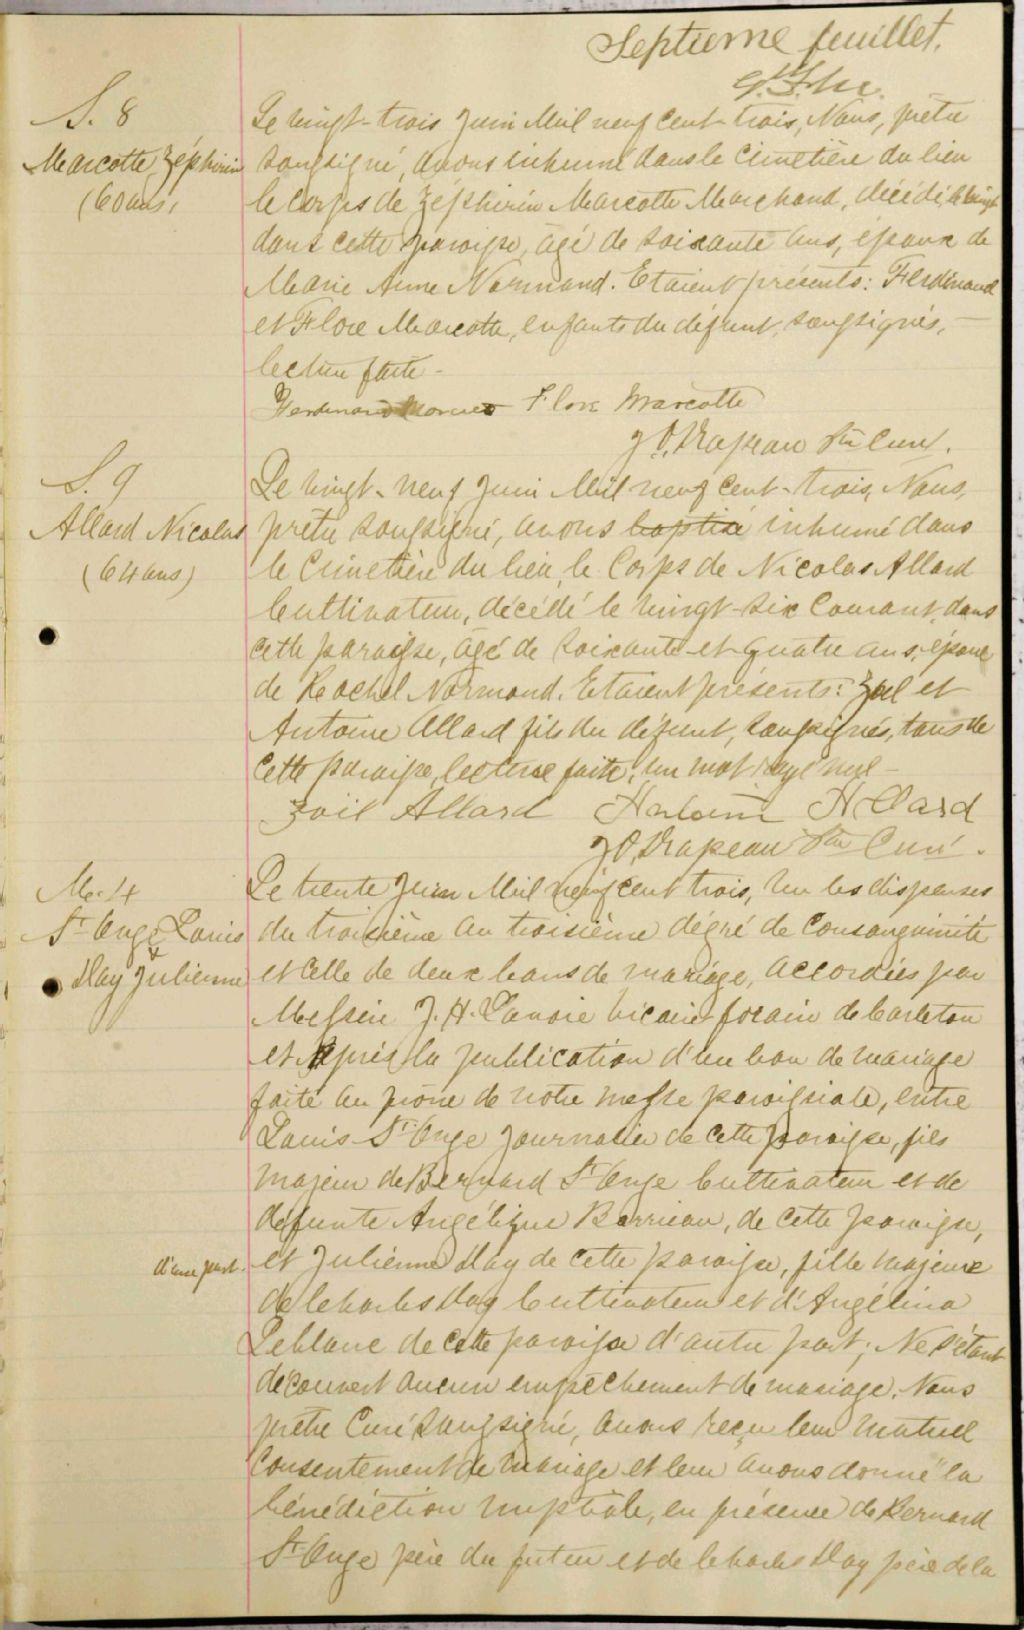 Septième feuillet.
S. 8
Marcotte Zéphirin
(60 ans)
Le vingt-trois Juin Mil neuf cent trois, Nous, prêtre
soussigné, avons inhumé dans le cimetière du lieu
le corps de Zéphirin Marcotte Marchand, décédé, le vingt
dans cette paroisse, âgé de soixante ans, époux de
Marie Anne Normand. Etaient présents: Ferdinand
et Flore Marcotte, enfants du défunt, soussignés,
lecture faite -
Ferdinand Flore Marcotte
J. O. Drapeau Ptre Curé.
S. 9
Allard Nicolas
(64 ans)
Le vingt-neuf Juin Mil neuf cent-trois, Nous,
prêtre soussigné, avons baptisé inhumé dans
le Cimetière du lieu, le Corps de Nicolas Allard
Cultivateur, décédé le vingt-six Courant, dans
cette paroisse, âgé de soixante et quatre ans, époux
de Rachel Normand. Etaient présents: Zoel et
Antoine Allard fils du défunt, soussignés, tous de
cette paroisse, lecture faite; un mot rayé nul -
Zoil Allard Allard
J. O. Drapeau Ptre Curé.
M. 4
St Onge Louis
&
Day Julienne
Le trente Juin Mil neuf cent trois, Vu les dispenses
du troisième au troisième dégré de consanguinité
et celle de deux bans de mariage, accordées par
Messire J. H. Lavoie vicaire forain de Carleton
et Après la publication d'un ban de mariage
faite au prône de notre messe paroissiale, entre
Louis St Onge Journalier de cette paroisse, fils
majeur de Bernard St Onge Cultivateur et de
défunte Angélique Barrieau, de cette paroisse,
d'une part.
et Julienne Day de cette paroisse, fille majeure
de Charles Day Cultivateur et d'Angélina
Leblanc de cette paroisse d'autre part; Ne s'étant
découvert aucun empêchement de mariage. Nous
prêtre Curé soussigné, avons reçu leur mutuel
Consentement de mariage et leur avons donné la
bénédiction nuptiale, en présence de Bernard
St Onge père du futur et de Charles Day père de la